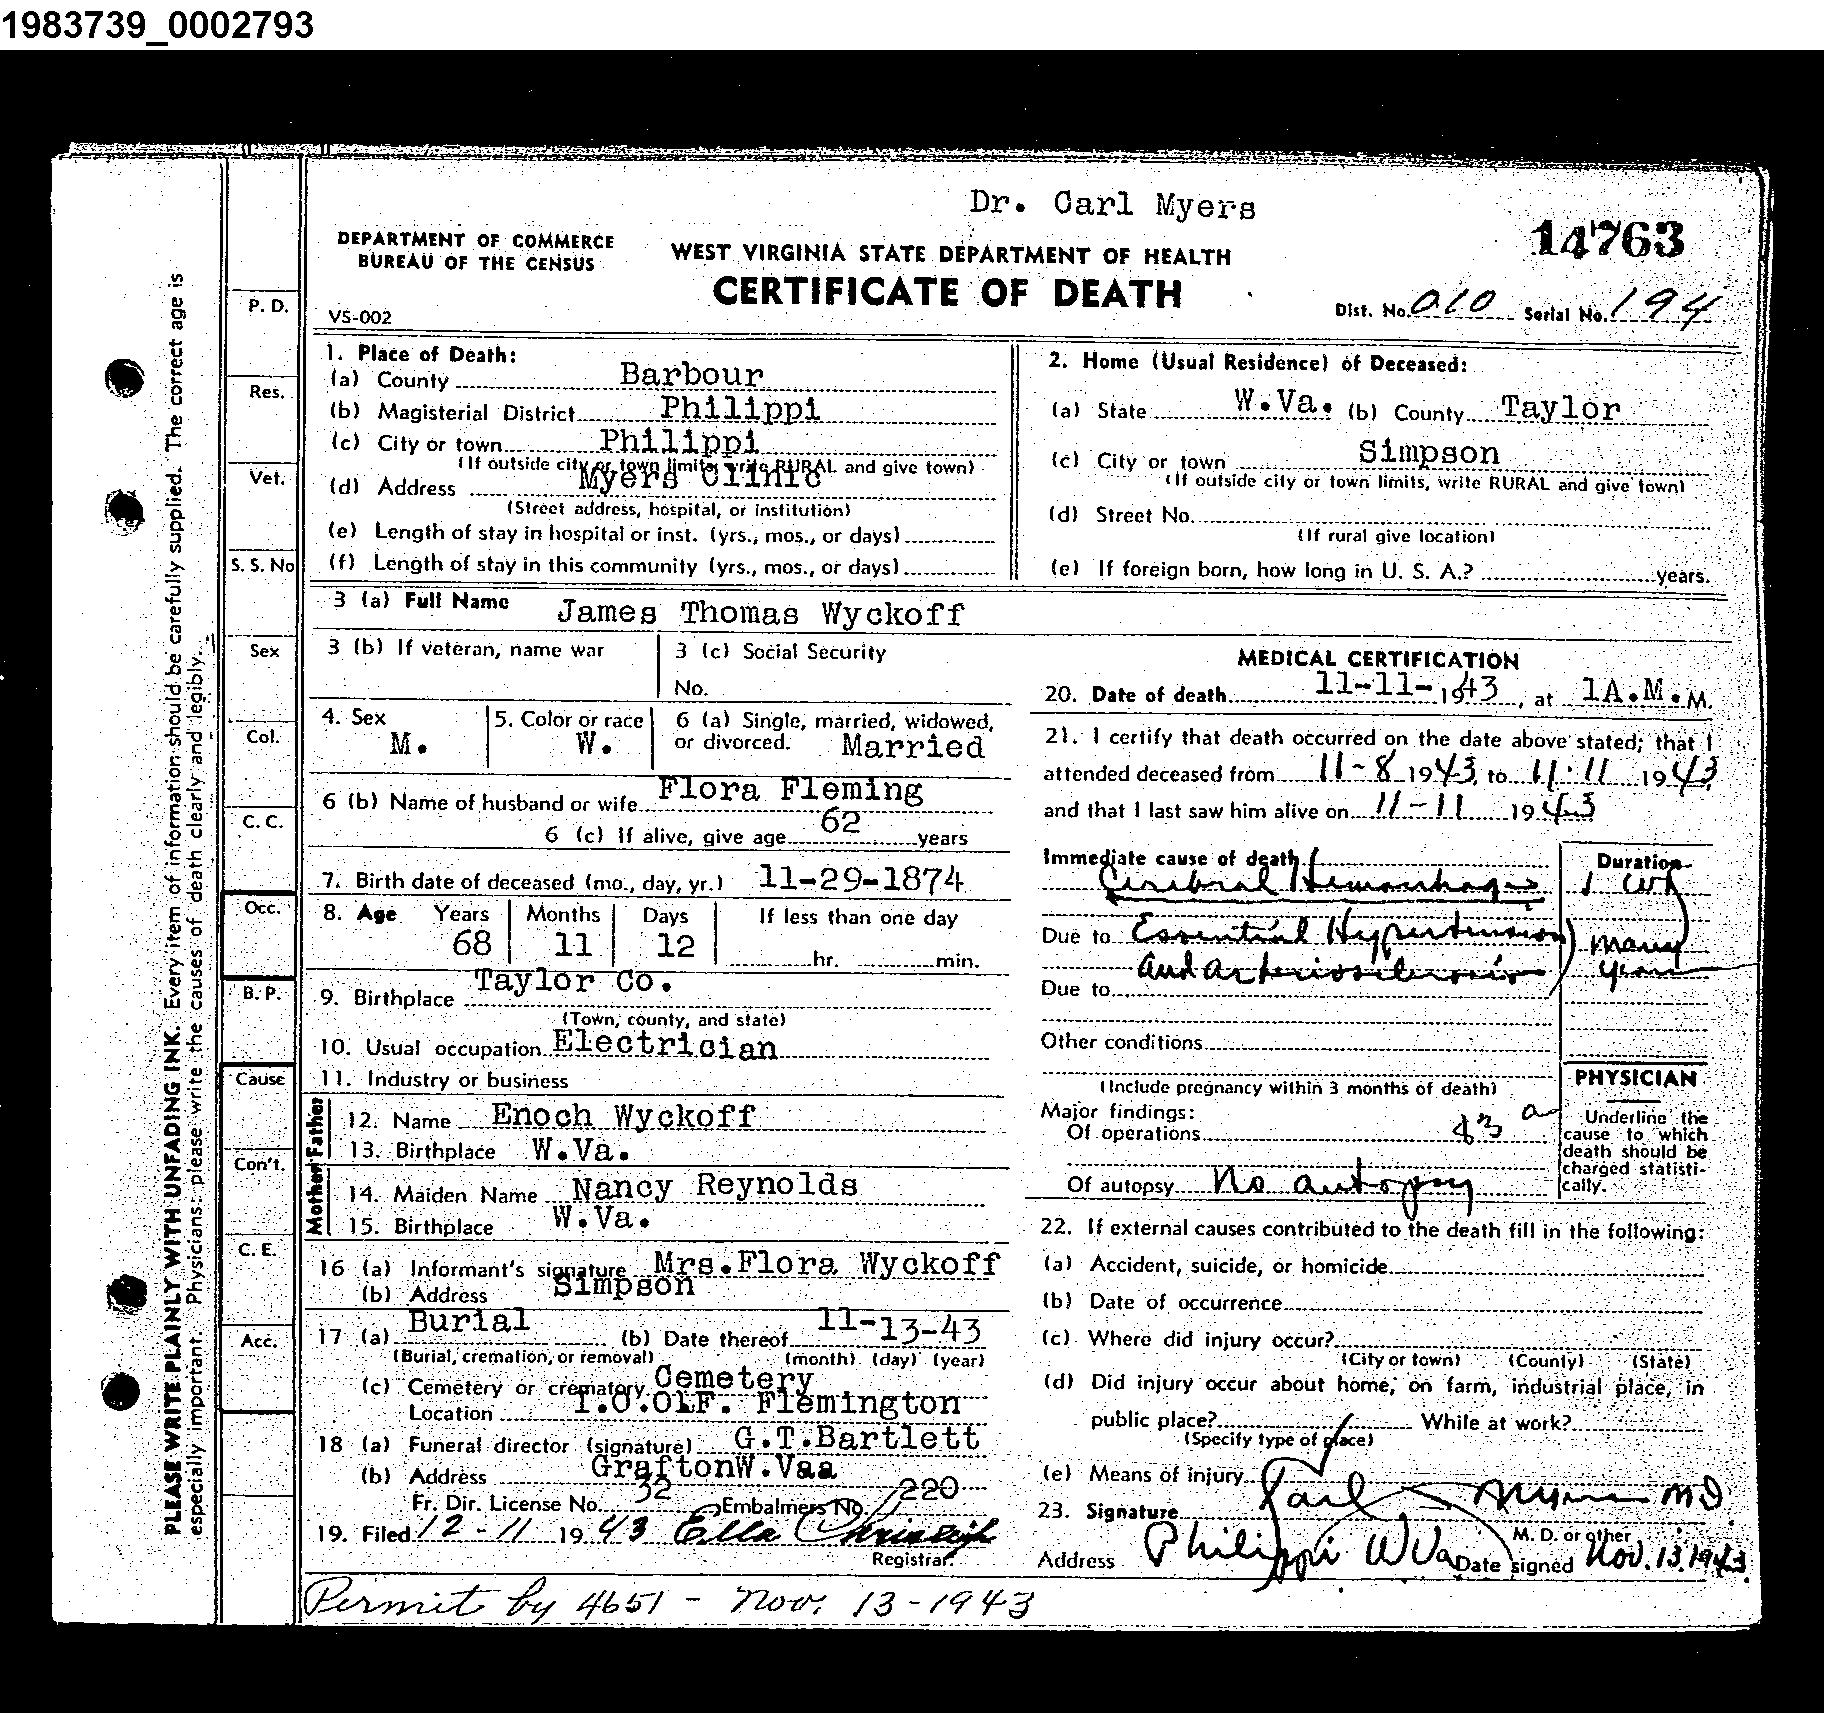 1983739_0002793
Dr. Carl Myers
14763
DEPARTMENT OF COMMERCE
BUREAU OF THE CENSUS
WEST VIRGINIA STATE DEPARTMENT OF HEALTH
CERTIFICATE OF DEATH
VS-002
Dist. No. 010 Serial No. 194
PLEASE WRITE PLAINLY WITH UNFADING INK. Every item of information should be carefully supplied. The correct age is
especially important. Physicians: please write the causes of death clearly and legibly.
P. D.
Res.
Vet.
S. S. No
Sex
Col.
C. C.
Occ.
B. P.
Cause
Con't.
C. E.
Acc.
1. Place of Death:
(a) County Barbour
(b) Magisterial District Philippi
(c) City or town Philippi
(If outside city or town limits, write RURAL and give town)
(d) Address Myers Clinic
(Street address, hospital, or institution)
(e) Length of stay in hospital or inst. (yrs., mos., or days)
(f) Length of stay in this community (yrs., mos., or days)
2. Home (Usual Residence) of Deceased:
(a) State W.Va. (b) County Taylor
(c) City or town Simpson
(If outside city or town limits, write RURAL and give town)
(d) Street No.
(If rural give location)
(e) If foreign born, how long in U. S. A.? years.
3 (a) Full Name James Thomas Wyckoff
3 (b) If veteran, name war
3 (c) Social Security
No.
4. Sex M.
5. Color or race W.
6 (a) Single, married, widowed,
or divorced. Married
6 (b) Name of husband or wife Flora Fleming
6 (c) If alive, give age 62 years
7. Birth date of deceased (mo., day, yr.) 11-29-1874
8. Age Years Months Days If less than one day
68 11 12 hr. min.
9. Birthplace Taylor Co.
(Town, county, and state)
10. Usual occupation Electrician
11. Industry or business
Father
12. Name Enoch Wyckoff
13. Birthplace W.Va.
Mother
14. Maiden Name Nancy Reynolds
15. Birthplace W.Va.
16 (a) Informant's signature Mrs.Flora Wyckoff
(b) Address Simpson
17 (a) Burial (b) Date thereof 11-13-43
(Burial, cremation, or removal) (month) (day) (year)
(c) Cemetery or crematory Cemetery
Location I.O.OlF. Flemington
18 (a) Funeral director (signature) G.T.Bartlett
(b) Address GraftonW.Vaa
Fr. Dir. License No. 32 Embalmers No. 220
19. Filed 12-11 1943 Ella
Registrar.
MEDICAL CERTIFICATION
20. Date of death 11-11-, 1943, at 1A.M.M.
21. I certify that death occurred on the date above stated; that I
attended deceased from 11-8 1943, to 11-11 1943
and that I last saw him alive on 11-11 1943
Immediate cause of death Duration
Cerebral Hemorrhage 1 wk
Due to Essential Hypertension many
and arteriosclerosis years
Due to
Other conditions
(Include pregnancy within 3 months of death)
Major findings:
Of operations 83 a
Of autopsy No autopsy
PHYSICIAN
Underline the
cause to which
death should be
charged statisti-
cally.
22. If external causes contributed to the death fill in the following:
(a) Accident, suicide, or homicide
(b) Date of occurrence
(c) Where did injury occur?
(City or town) (County) (State)
(d) Did injury occur about home, on farm, industrial place, in
public place? While at work?
(Specify type of place)
(e) Means of injury
23. Signature Carl Myers MD
M. D. or other
Address Philippi W Va Date signed Nov. 13. 1943
Permit by 4651 - Nov. 13-1943